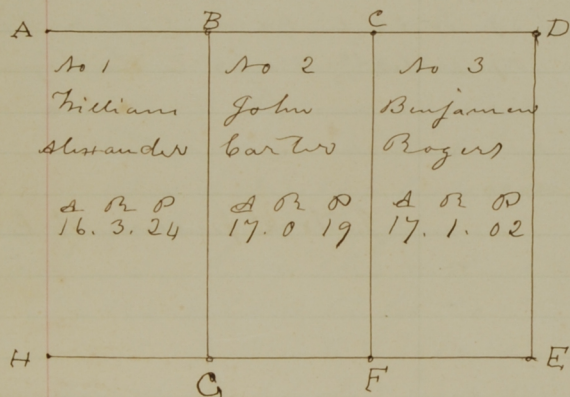 A B C D
No 1
William
Alexander
A R P
16. 3. 24
No 2
John
Carter
A R P
17. 0 19
No 3
Benjamin
Rogers
A R P
17. 1. 02
H G F E